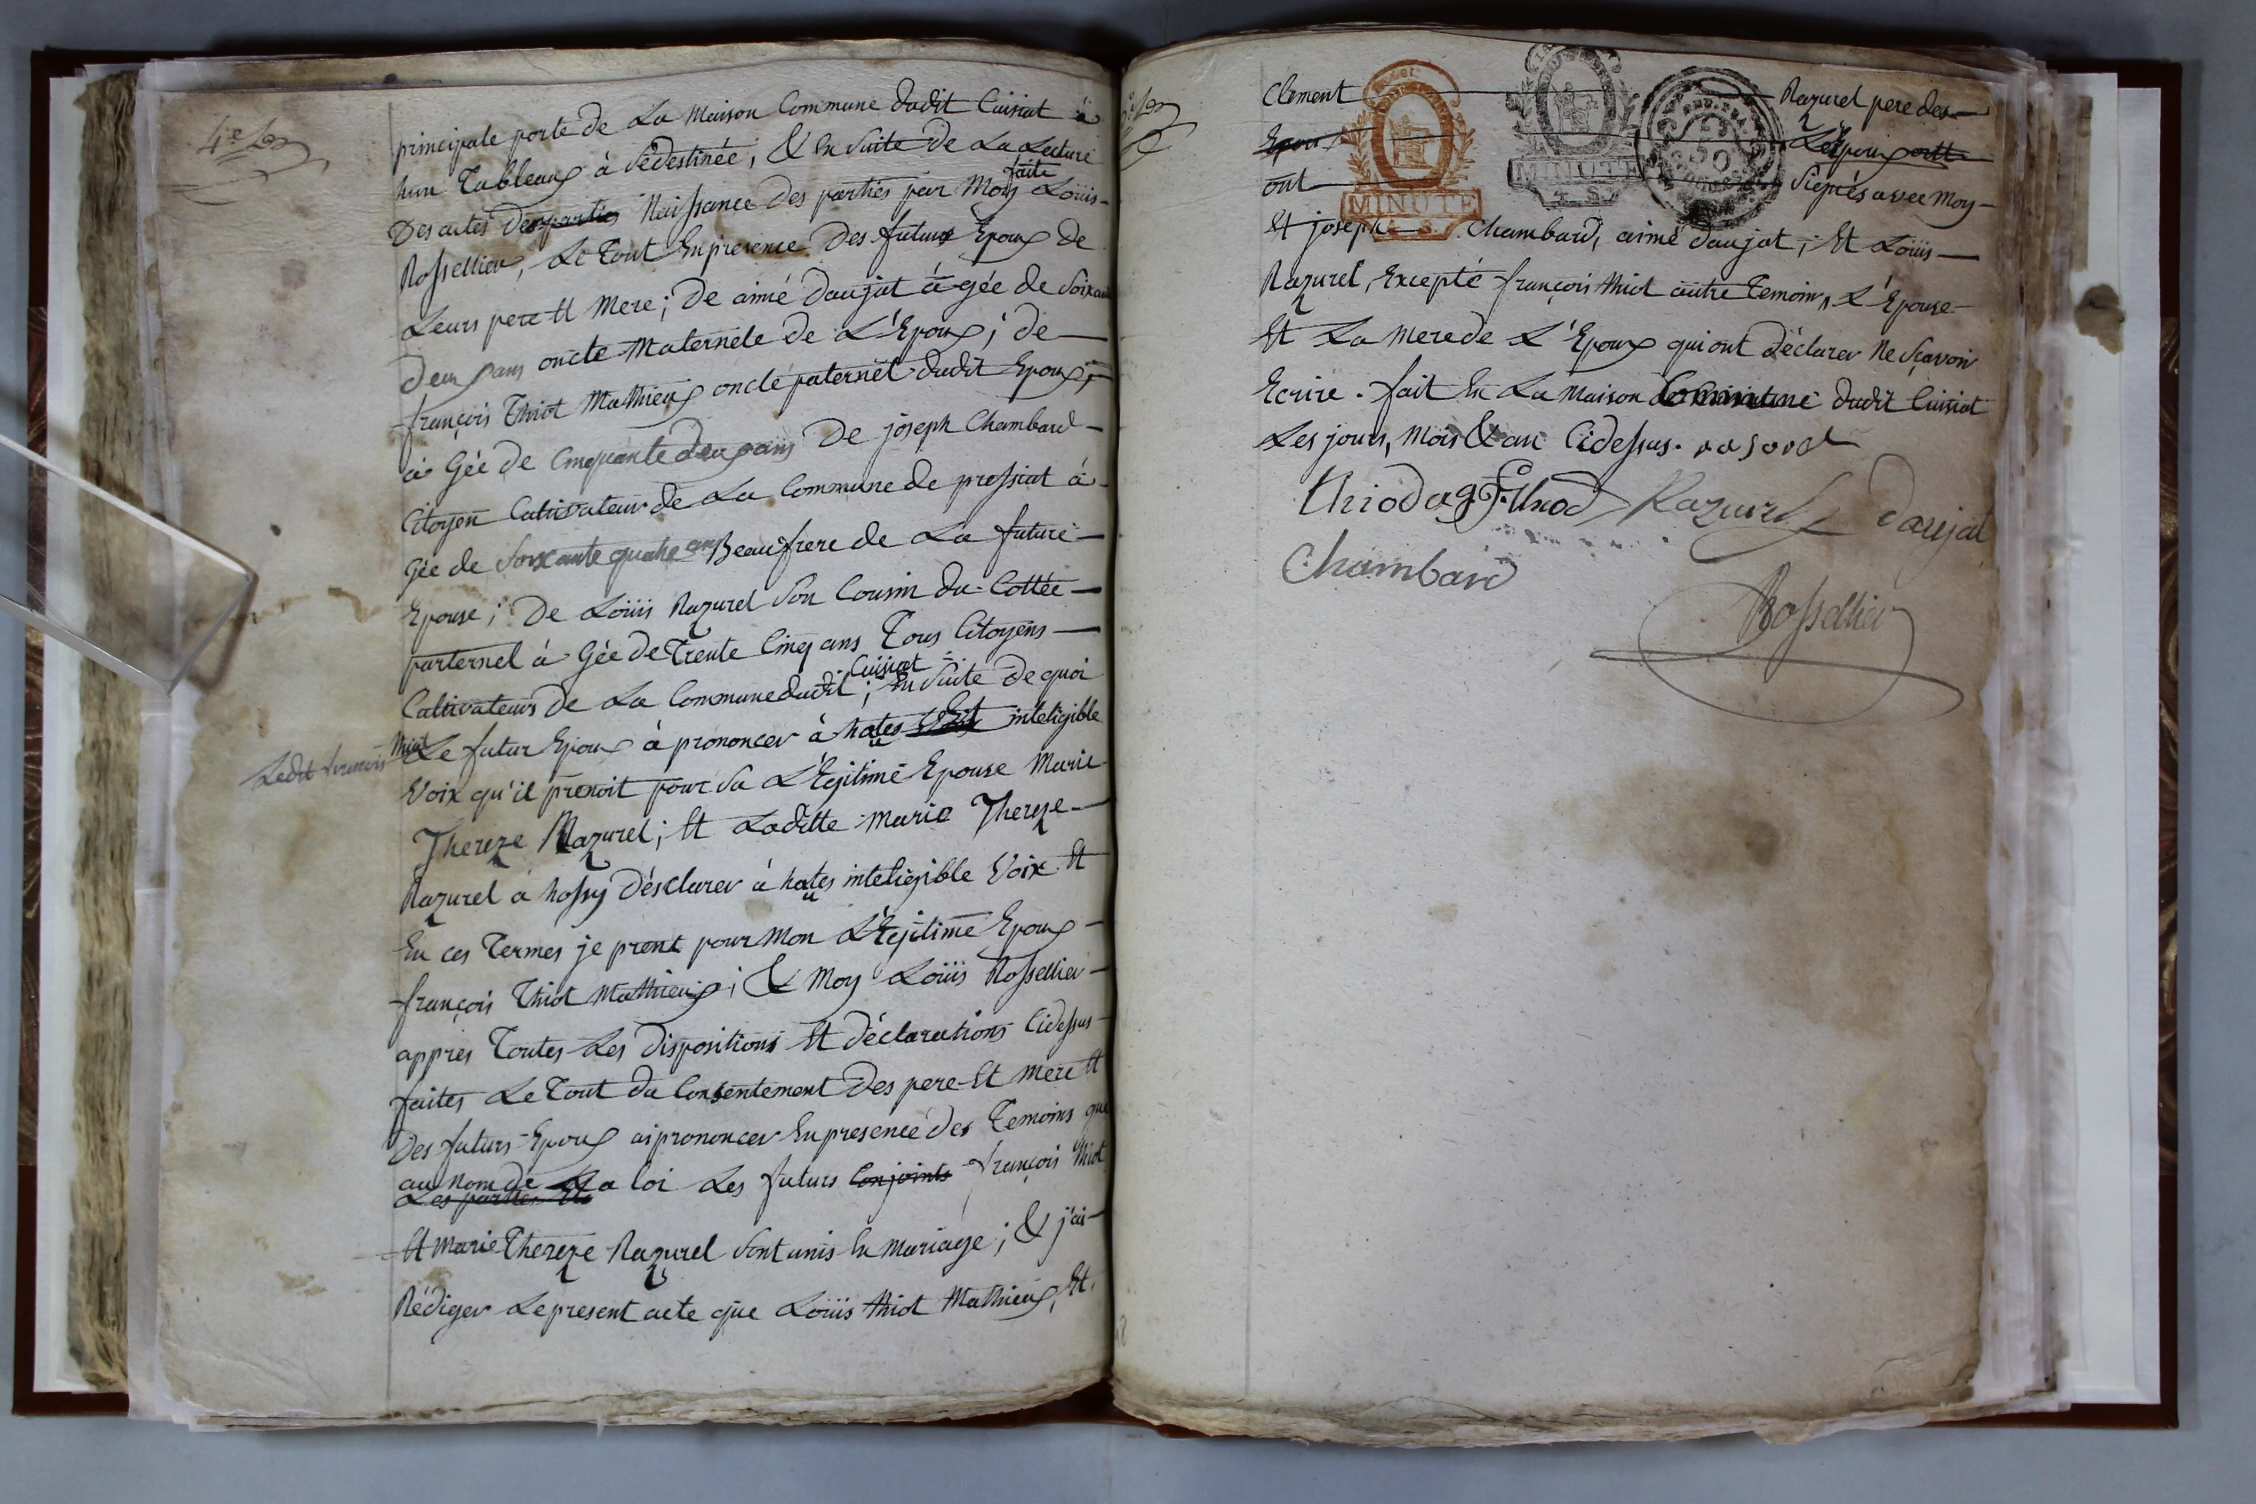 4e
principale porte de La Maison Commune dudit Cuisiat à
hun Tableaux à Sédestinée, & En Suite de La Lecture
faite
Des actes des parties Naissance des parties par Moy Loüis
Rossellier, Le Tout En presence Des futurs Epoux de
Leurs pere Et Mere; De aimé daujat à gée de Soixante
deux ans oncle Maternele de L'Epoux; de
françois Thiot Mathieux oncle paternel dudit Epoux,
à Gée de Cinquante deux ans De joseph Chambard
Citoyen Cultivateur de La Commune de pressiat à
Gée de Soixante quatre ans Beaufrere de La future
Epouse; De Loüis Razurel Son Cousin du Cottée
parternel à Gée De Trente Cinq ans Tous Citoyens
Cuisiat
Cultivateurs de La Commune dudit; En Suite De quoi
Ledit francois Thiot
Le futur Epoux à prononcer à hautes Voix inteligible
Voix qu'il prenoit pour Sa Légitime Epouse Marie
Thereze Razurel; Et Laditte Marie Thereze
Razurel à hossy Désclarer à hautes inteliegible Voix Et
En ces Termes je prent pour Mon Légitime Epoux
françois Thiot Mathieux; & Moy Loüis Rossellier
appres Toutes Les Dispositions Et déclarations Cidessus
faites Le Tout du Consentement Des pere Et Mere Et
Des futurs Epoux ai prononcer En presence des Temoins que
au Nom de La loi Les futurs Conjoints françois Thiot
Les parties
Et Marie Thereze Razurel Sont unis En Mariage; & j'ai
Rédiger Le present acte que Loüis Thiot Mathieux, Et
Clement Razurel pere des
Epoux Les Epoux
ont Siepres avec Moy
MINUTE
MINUTE
4 S.
50
Et joseph Chambard, aimé daujat; Et Loüis
Razurel, Excepté françois Thiot autre Temoin, L'Epouse
Et La Mere de L'Epoux qui ont déclarer Ne Sçavoir
Ecrire. fait En La Maison Commune dudit Cuisiat
Les jours, Mois & an Cidessus.
thiod Razurel daujat
Chambard
Rossellier